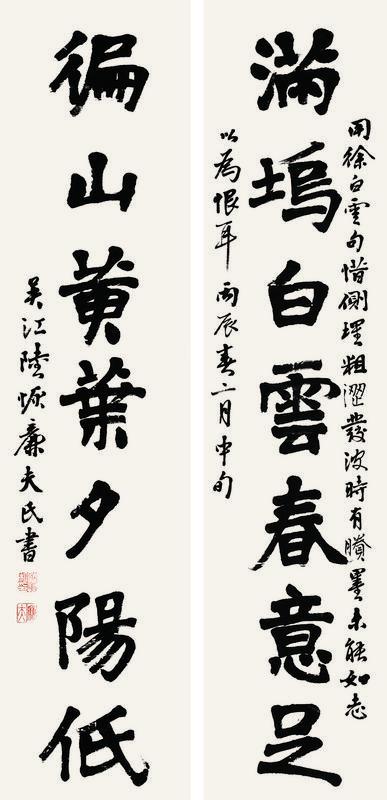 用徐白雲句惜側理粗澀發波時有賸墨未能如志
滿塢白雲春意足
以為恨耳丙辰春二月中旬
徧山黄葉夕陽低
吴江陸恢廉夫氏書